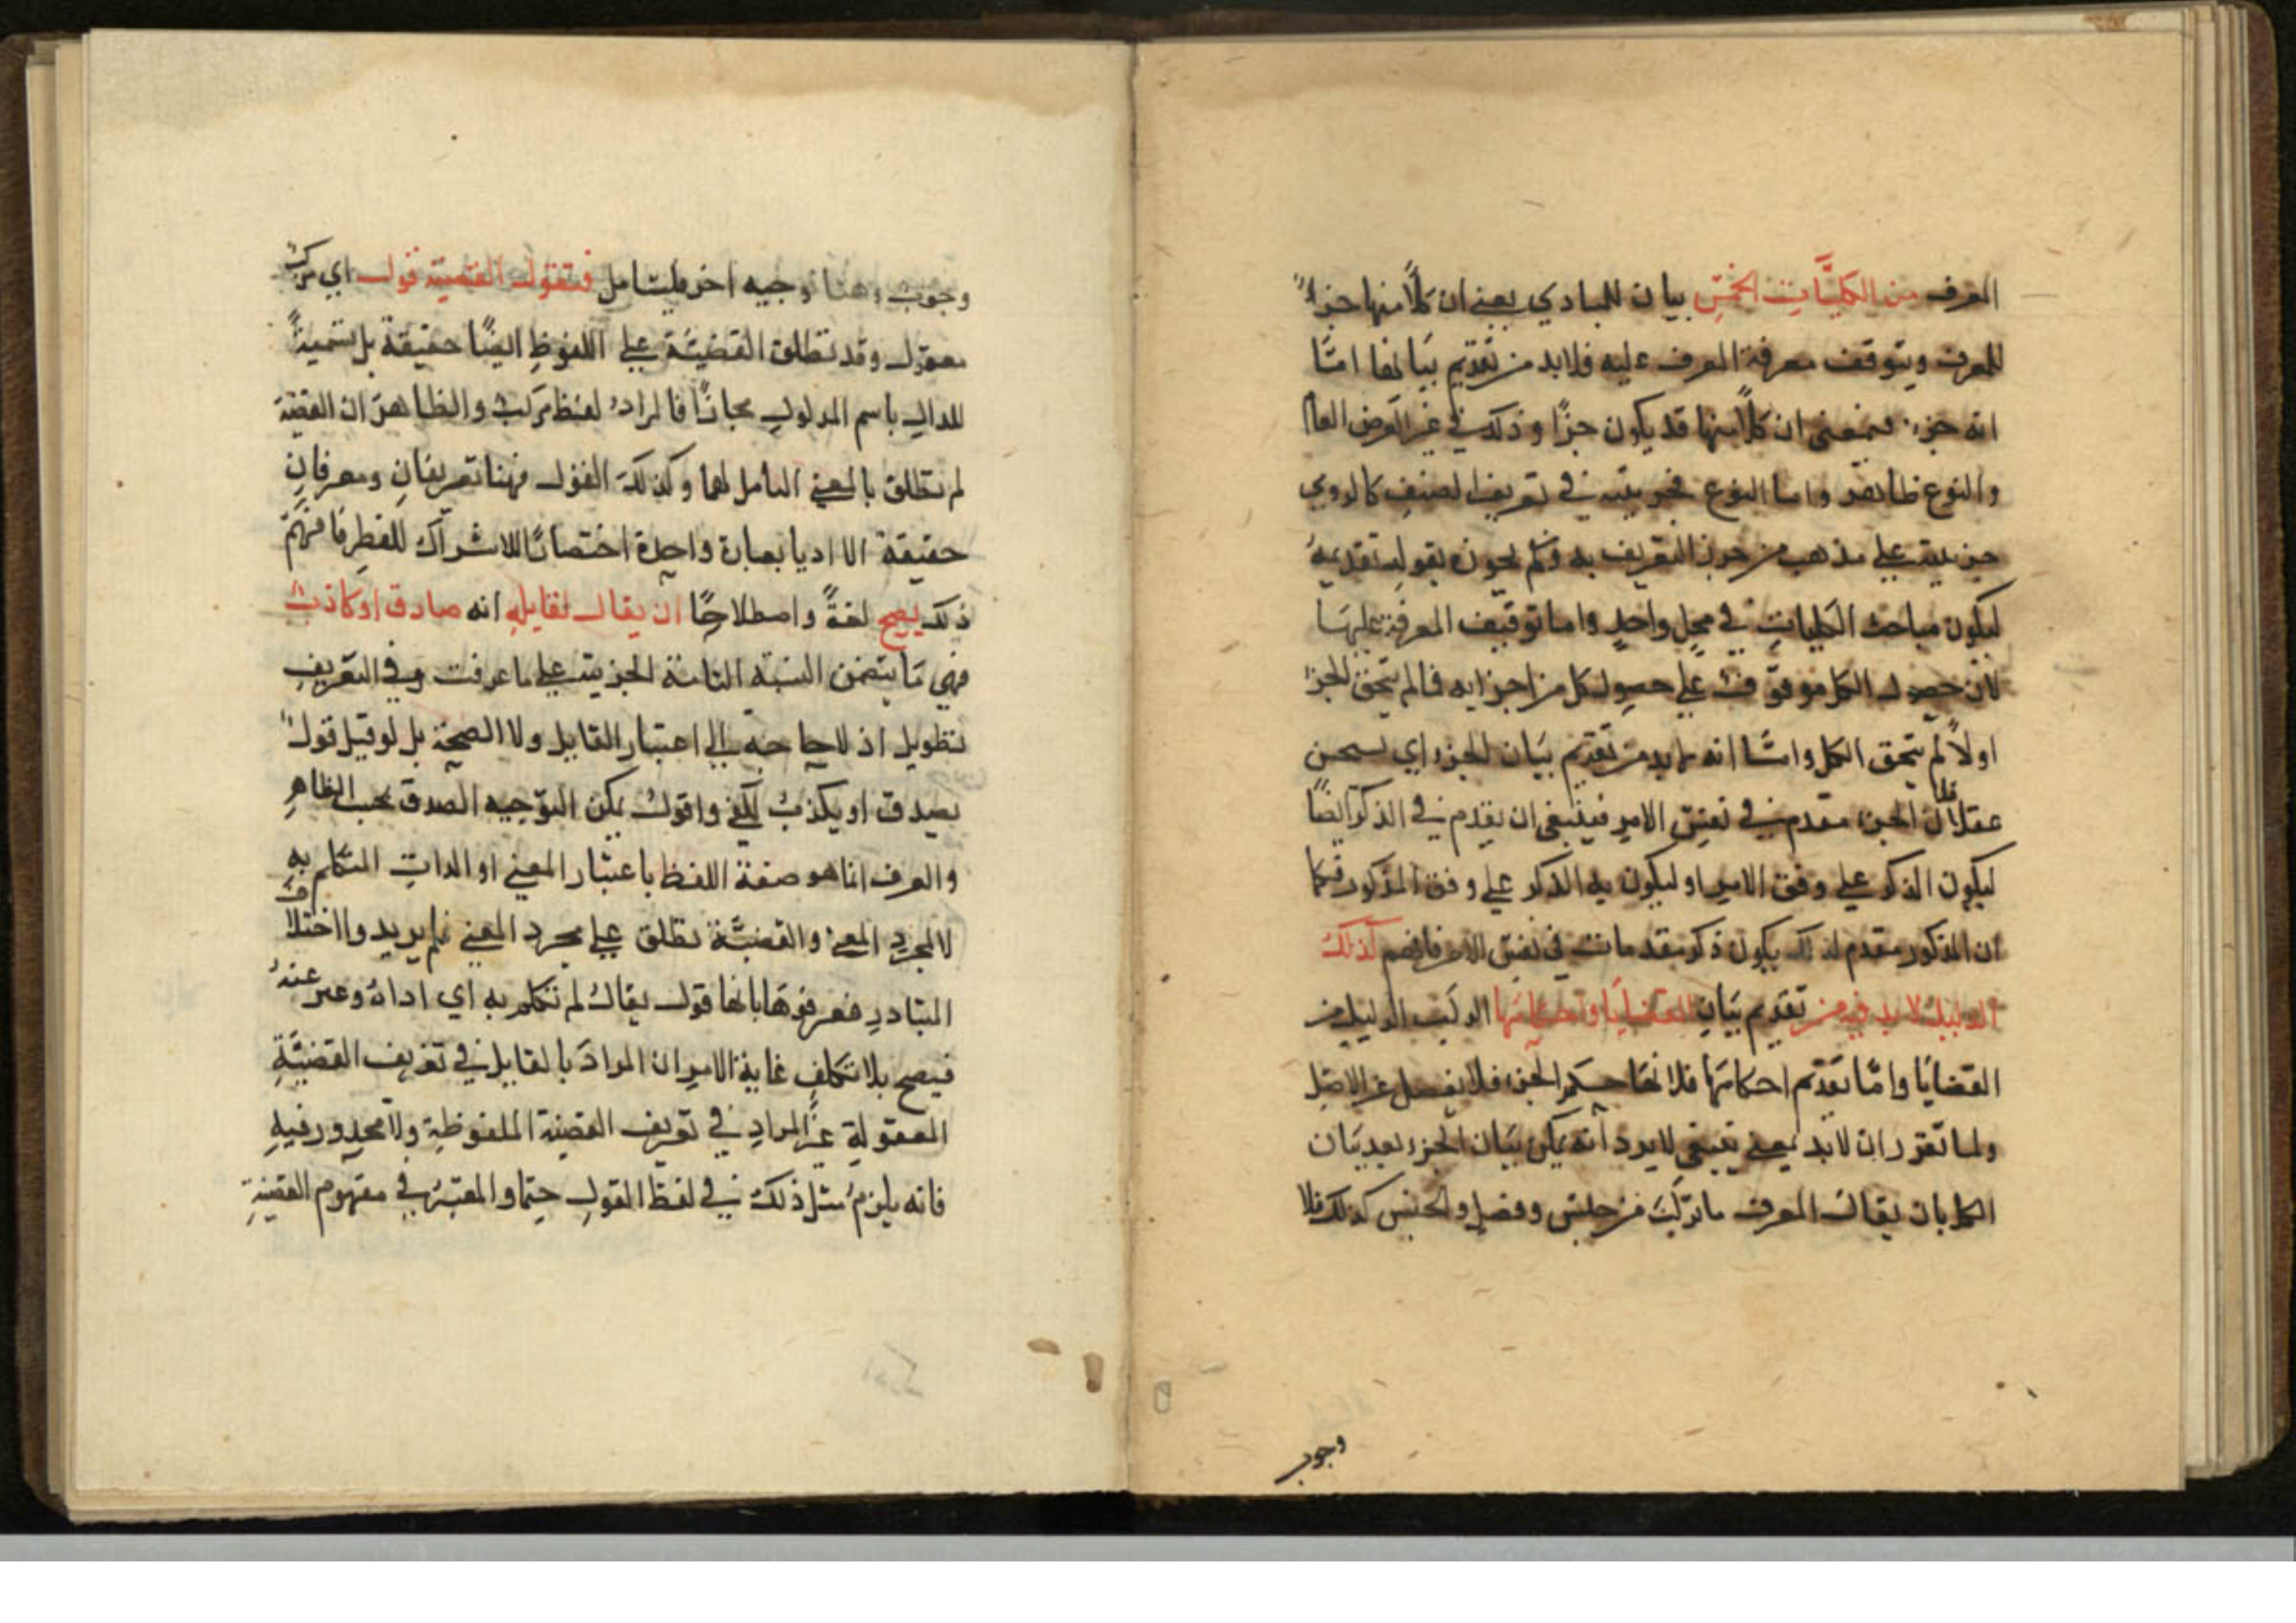 المعرف من الكليَّات الخمس بيان للمبادي يعني ان كلاً منها جزءاً
للمعرف ويتوقف معرفة المعرف عليه فلا بد من تقديم بيانها امّا
انه جزء فبمعنى ان كلاً منها قد يكون جزًا وذلك في غير العرض العام
والنوع ظاهر واما النوع فجزئيته في تعريف الصنف كالرومي
جزئيته علي مذهب من جوز التعريف به ومن لم يجوزه يقول تقديمه
ليكون مباحث الكليات في محل واحد واما توقيف المعرفة عليها
لان حصول الكل موقوف على حصول كل من اجزايه فما لم يتحقق الجزء
اولاً لم يتحقق الكل وامّا انه لا بد من تقديم بيان الجزء اي يستحسن
عقلا فلان الجزء مقدم في نفس الامر فينبغي ان يقدم في الذكر ايضًا
ليكون الذكر علي وفق الامر او ليكون الذكر علي وفق المذكور فكما
ان المذكور مقدم لذلك يكون ذكره مقدمات في نفس الامر فافهم لذلك
الدليل لا بد فيه من تقديم بيان القضايا واحكامها لتركيب الدليل من
القضايا وامّا تقديم احكامها فلانها حكم الجزء فلا يفصل عن الاصل
ولما تقرر ان لا بد بمعنى ينبغي لا يرد انه يمكن بيان الجزء بعد بيان
الكل بان يقال المعرف ما تركب من جنس وفصل والجنس كذلك فلا
وجوب
وجوب وهنا توجيه اخر فليتامل فنقول القضية قول اي مركب
معقول وقد تطلق القضيّة علي اللفوظ ايضًا حقيقة بل تسميةً
للدال باسم المدلول مجازًا فالمراد لفظ مركب والظاهر ان القضية
لم تطلق بالمعني الشامل لهما وكذلك القول فهنا تعريفان ومعرفان
حقيقة الا اديا بعبارة واحدة اختصارًا للاشتراك اللفظي فافهم
ذلك يصح لغةً واصطلاحًا ان يقال لقايله انه صادق او كاذب
فهي ما يتضمن النسبة التامة الخبرية علي ما عرفت وفي التعريف
تطويل اذ لا حاجة الي اعتبار القايل ولا الصحة بل لو قيل قول
يصدق او يكذب لكفي واقول يمكن التوجيه الصدق بحسب الظاهر
والعرف انما هو صفة اللفظ باعتبار المعني او الذات المتكلم به
لا لمجرد المعني والقضيَّة تطلق علي مجرد المعني فلم يريدوا اختلاف
المتبادر فعرفوها بانها قول يقال لم تتكلم به اي اداه وعبر عنه
فيصح بلا تكلف غاية الامر ان المراد بالقايل في تعريف القضيَّة
المعقولة غير المراد في تعريف القضية الملفوظة ولا محذور فيه
فانه يلزم مثل ذلك في لفظ القول حتما والمعتبر في مفهوم القضية